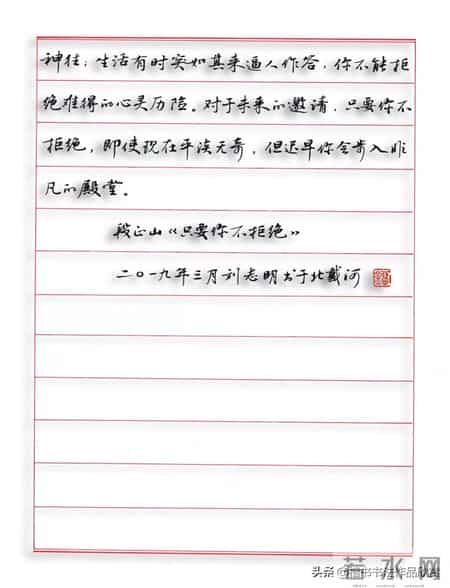 神往；生活有时突如其来逼人作答，你不能拒
绝难得的心灵历险。对于未来的邀请，只要你不
拒绝，即使现在平淡无奇，但迟早你会步入非
凡的殿堂。
段正山《只要你不拒绝》
二〇一九年三月刘志明书于北戴河
若水网
头条 @书书法作品